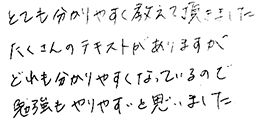 とても分かりやすく教えて頂きました
たくさんのテキストがありますが
どれも分かりやすくなっているので
勉強もやりやすいと思いました